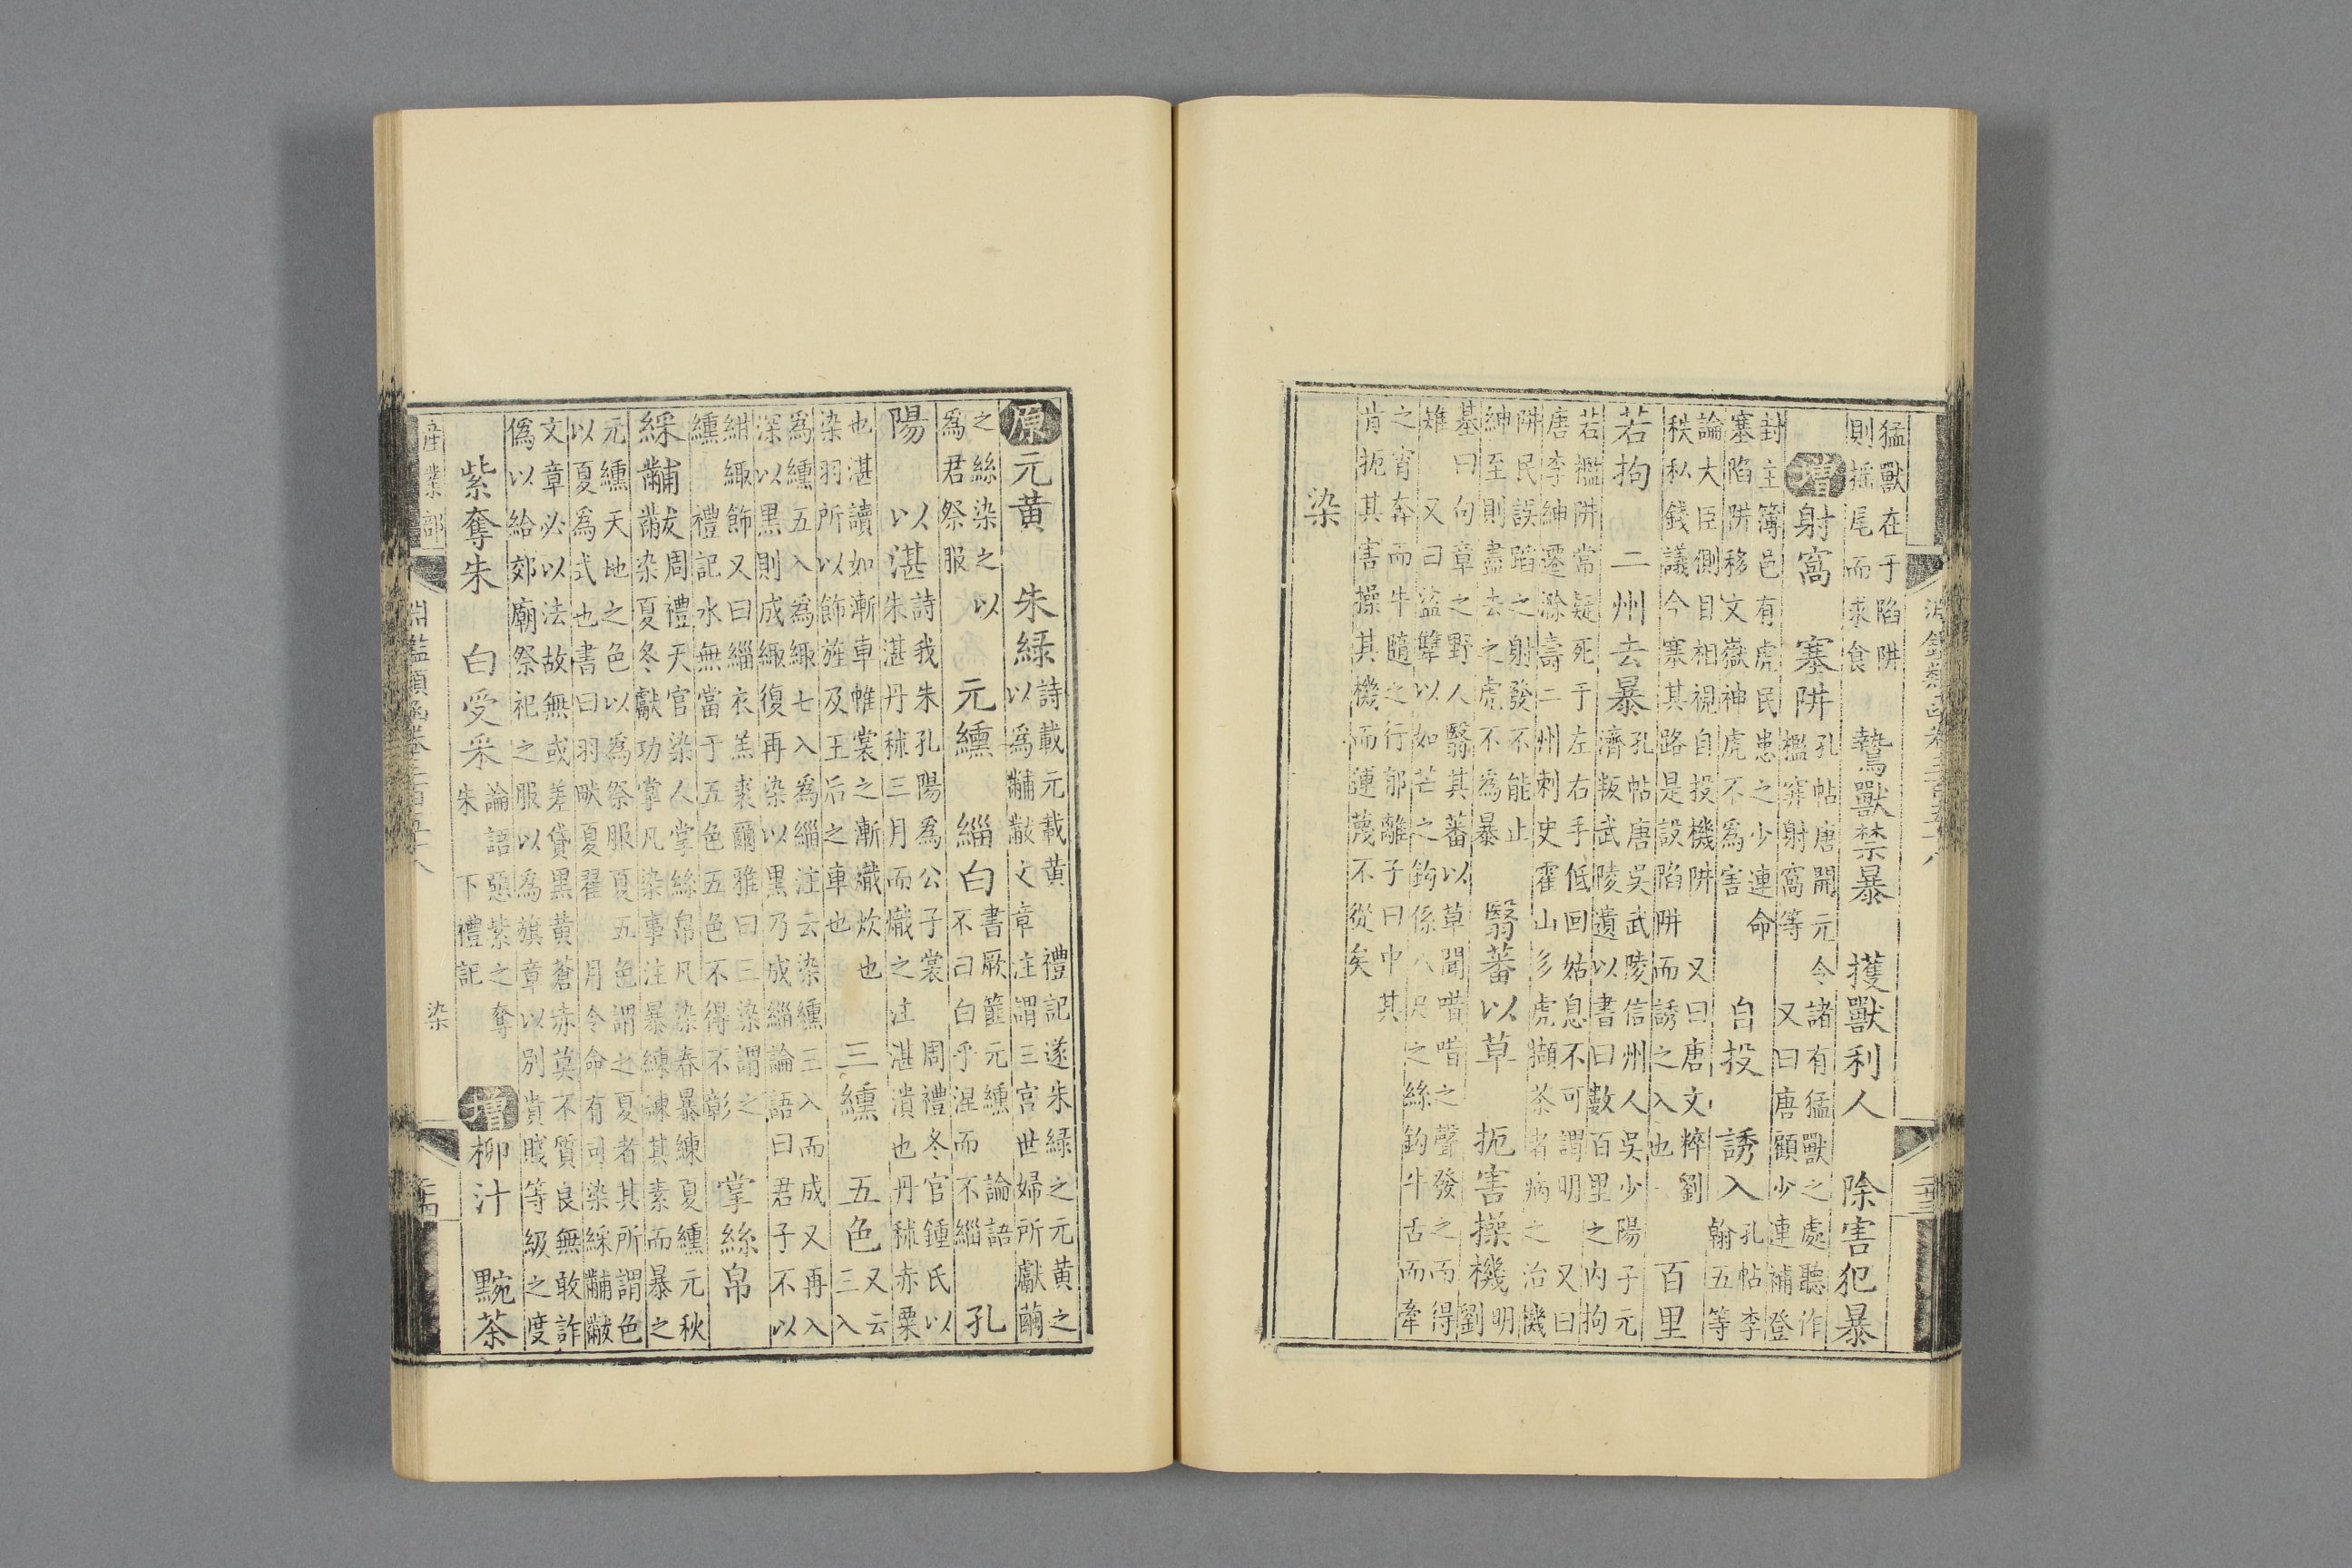 淵鑑類函卷三百五十八 二十三
猛獸在于陷阱
則搖尾而求食
鷙獸禁暴 獲獸利人 除害犯暴
增射窩 塞阱
孔帖唐開元令諸有猛獸之處聽作
檻穽射窩等 又曰唐顧少連補登
封主簿邑有虎民患之少連命
塞陷阱移文嶽神虎不為害
自投 誘入
孔帖李
翰五等
論大臣側目相視自投機阱 又曰唐文粹劉
秩私錢議今寨其路是設陷阱而誘之入也
百里
若拘 二州去暴
孔帖唐吳武陵信州人吳少陽子元
濟叛武陵遺以書曰數百里之內拘
若檻阱常疑死于左右手低回姑息不可謂明 又曰
唐李紳遷滁壽二州刺史霍山多虎擷茶者病之治機
阱民誤蹈之射發不能止
紳至則盡去之虎不為暴
翳蕃以草 扼害操機
明
劉
基曰句章之野人翳其蕃以草聞唶唶之聲發之而得
雉 又曰盜犨以如芒之鈎係八尺之絲鈎牛舌而牽
之宵奔而牛隨之行郁離子曰中其
肯扼其害操其機而運蔑不從矣
染
原元黃 朱綠
詩載元載黃 禮記遂朱綠之元黃之
以為黼黻文章注謂三宮世婦所獻繭
之絲染之 以
為君祭服
元纁 緇白
書厥篚元纁 論語
不曰白乎涅而不緇
孔
陽 以湛
詩我朱孔陽為公子裳 周禮冬官鍾氏以
朱湛丹秫三月而熾之注湛漬也丹秫赤粟
也湛讀如漸車帷裳之漸熾炊也
染羽所以飾旌及王后之車也
三纁 五色
又云
三入
為纁五入為緅七入為緇注云染纁三入而成又再入
深以黑則成緅復再染以黑乃成緇論語曰君子不以
紺緅飾又曰緇衣羔裘爾雅曰三染謂之
纁 禮記水無當于五色五色不得不彰
掌絲帛
綵黼黻
周禮天官染人掌絲帛凡染春暴練夏纁元秋
染夏冬獻功掌凡染事注暴練練其素而暴之
元纁天地之色以為祭服夏五色謂之夏者其所謂色
以夏為式也書曰羽畎夏翟 月令命有司染綵黼黻
文章必以法故無或差貸黑黃蒼赤莫不質良無敢詐
偽以給郊廟祭祀之服以為旗章以別貴賤等級之度
紫奪朱 白受采
論語惡紫之奪
朱 下禮記
增柳汁 黦茶
產業部 淵鑑類函卷三百五十八 染 二十四